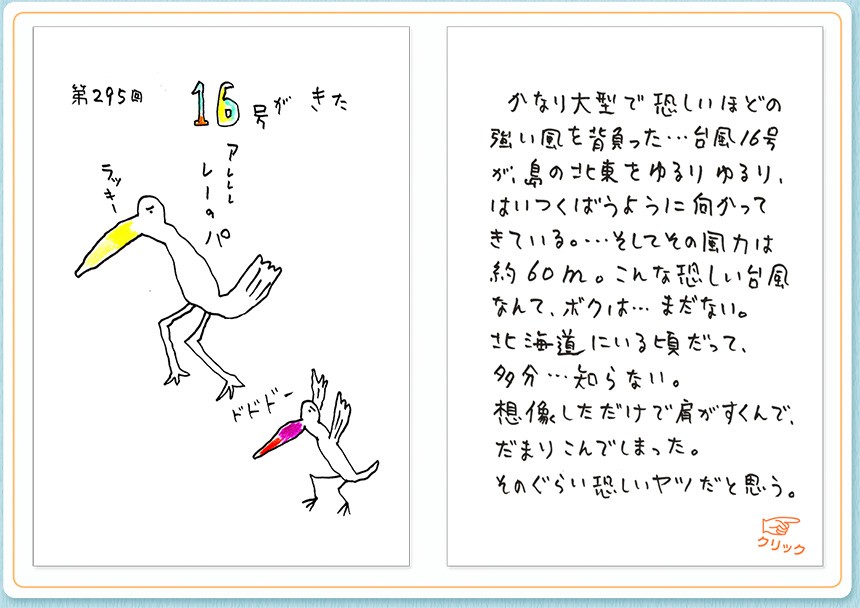 第295回
16号がきた
ラッキー
アレレレ
レーのパ
ドドドー
かなり大型で恐しいほどの
強い風を背負った…台風16号
が、島の北東をゆるりゆるり、
はいつくばうように向かって
きている。…そしてその風力は
約60m。こんな恐しい台風
なんて、ボクは…まだない。
北海道にいる頃だって、
多分…知らない。
想像しただけで肩がすくんで、
だまりこんでしまった。
そのぐらい恐しいヤツだと思う。
クリック